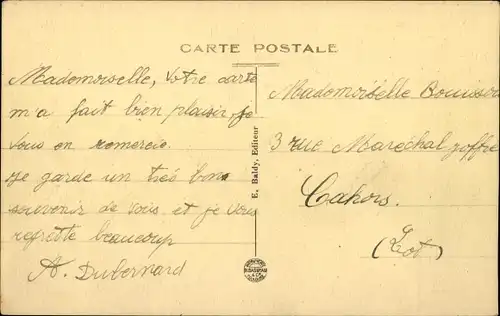 CARTE POSTALE
Mademoiselle, votre carte
m'a fait bien plaisir, je
vous en remercie.
Je garde un très bon
souvenir de vous et je vous
regrette beaucoup
A. Dubernard
E. Baldy, Editeur
Mademoiselle
3 rue Maréchal Joffre
Cahors.
(Lot)